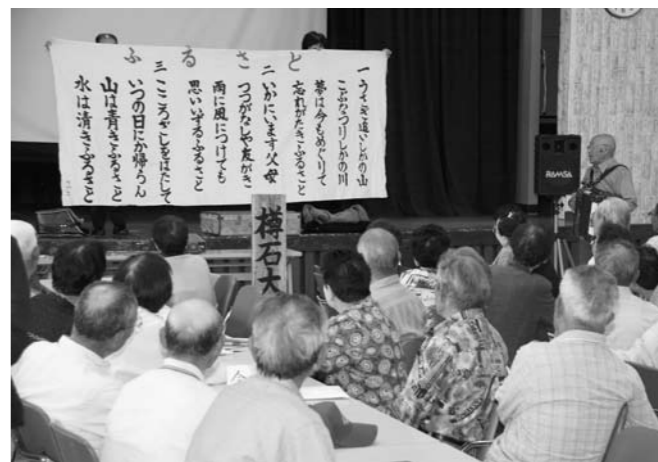 ふるさと
一 うさぎ追いしかの山
こぶなつりしかの川
夢は今もめぐりて
忘れがたきふるさと
二 いかにいます父母
つつがなしや友がき
雨に風につけても
思いいずるふるさと
三 こころざしをはたして
いつの日にか帰らん
山は青きふるさと
水は清きふるさと
樽石大
RAMSA